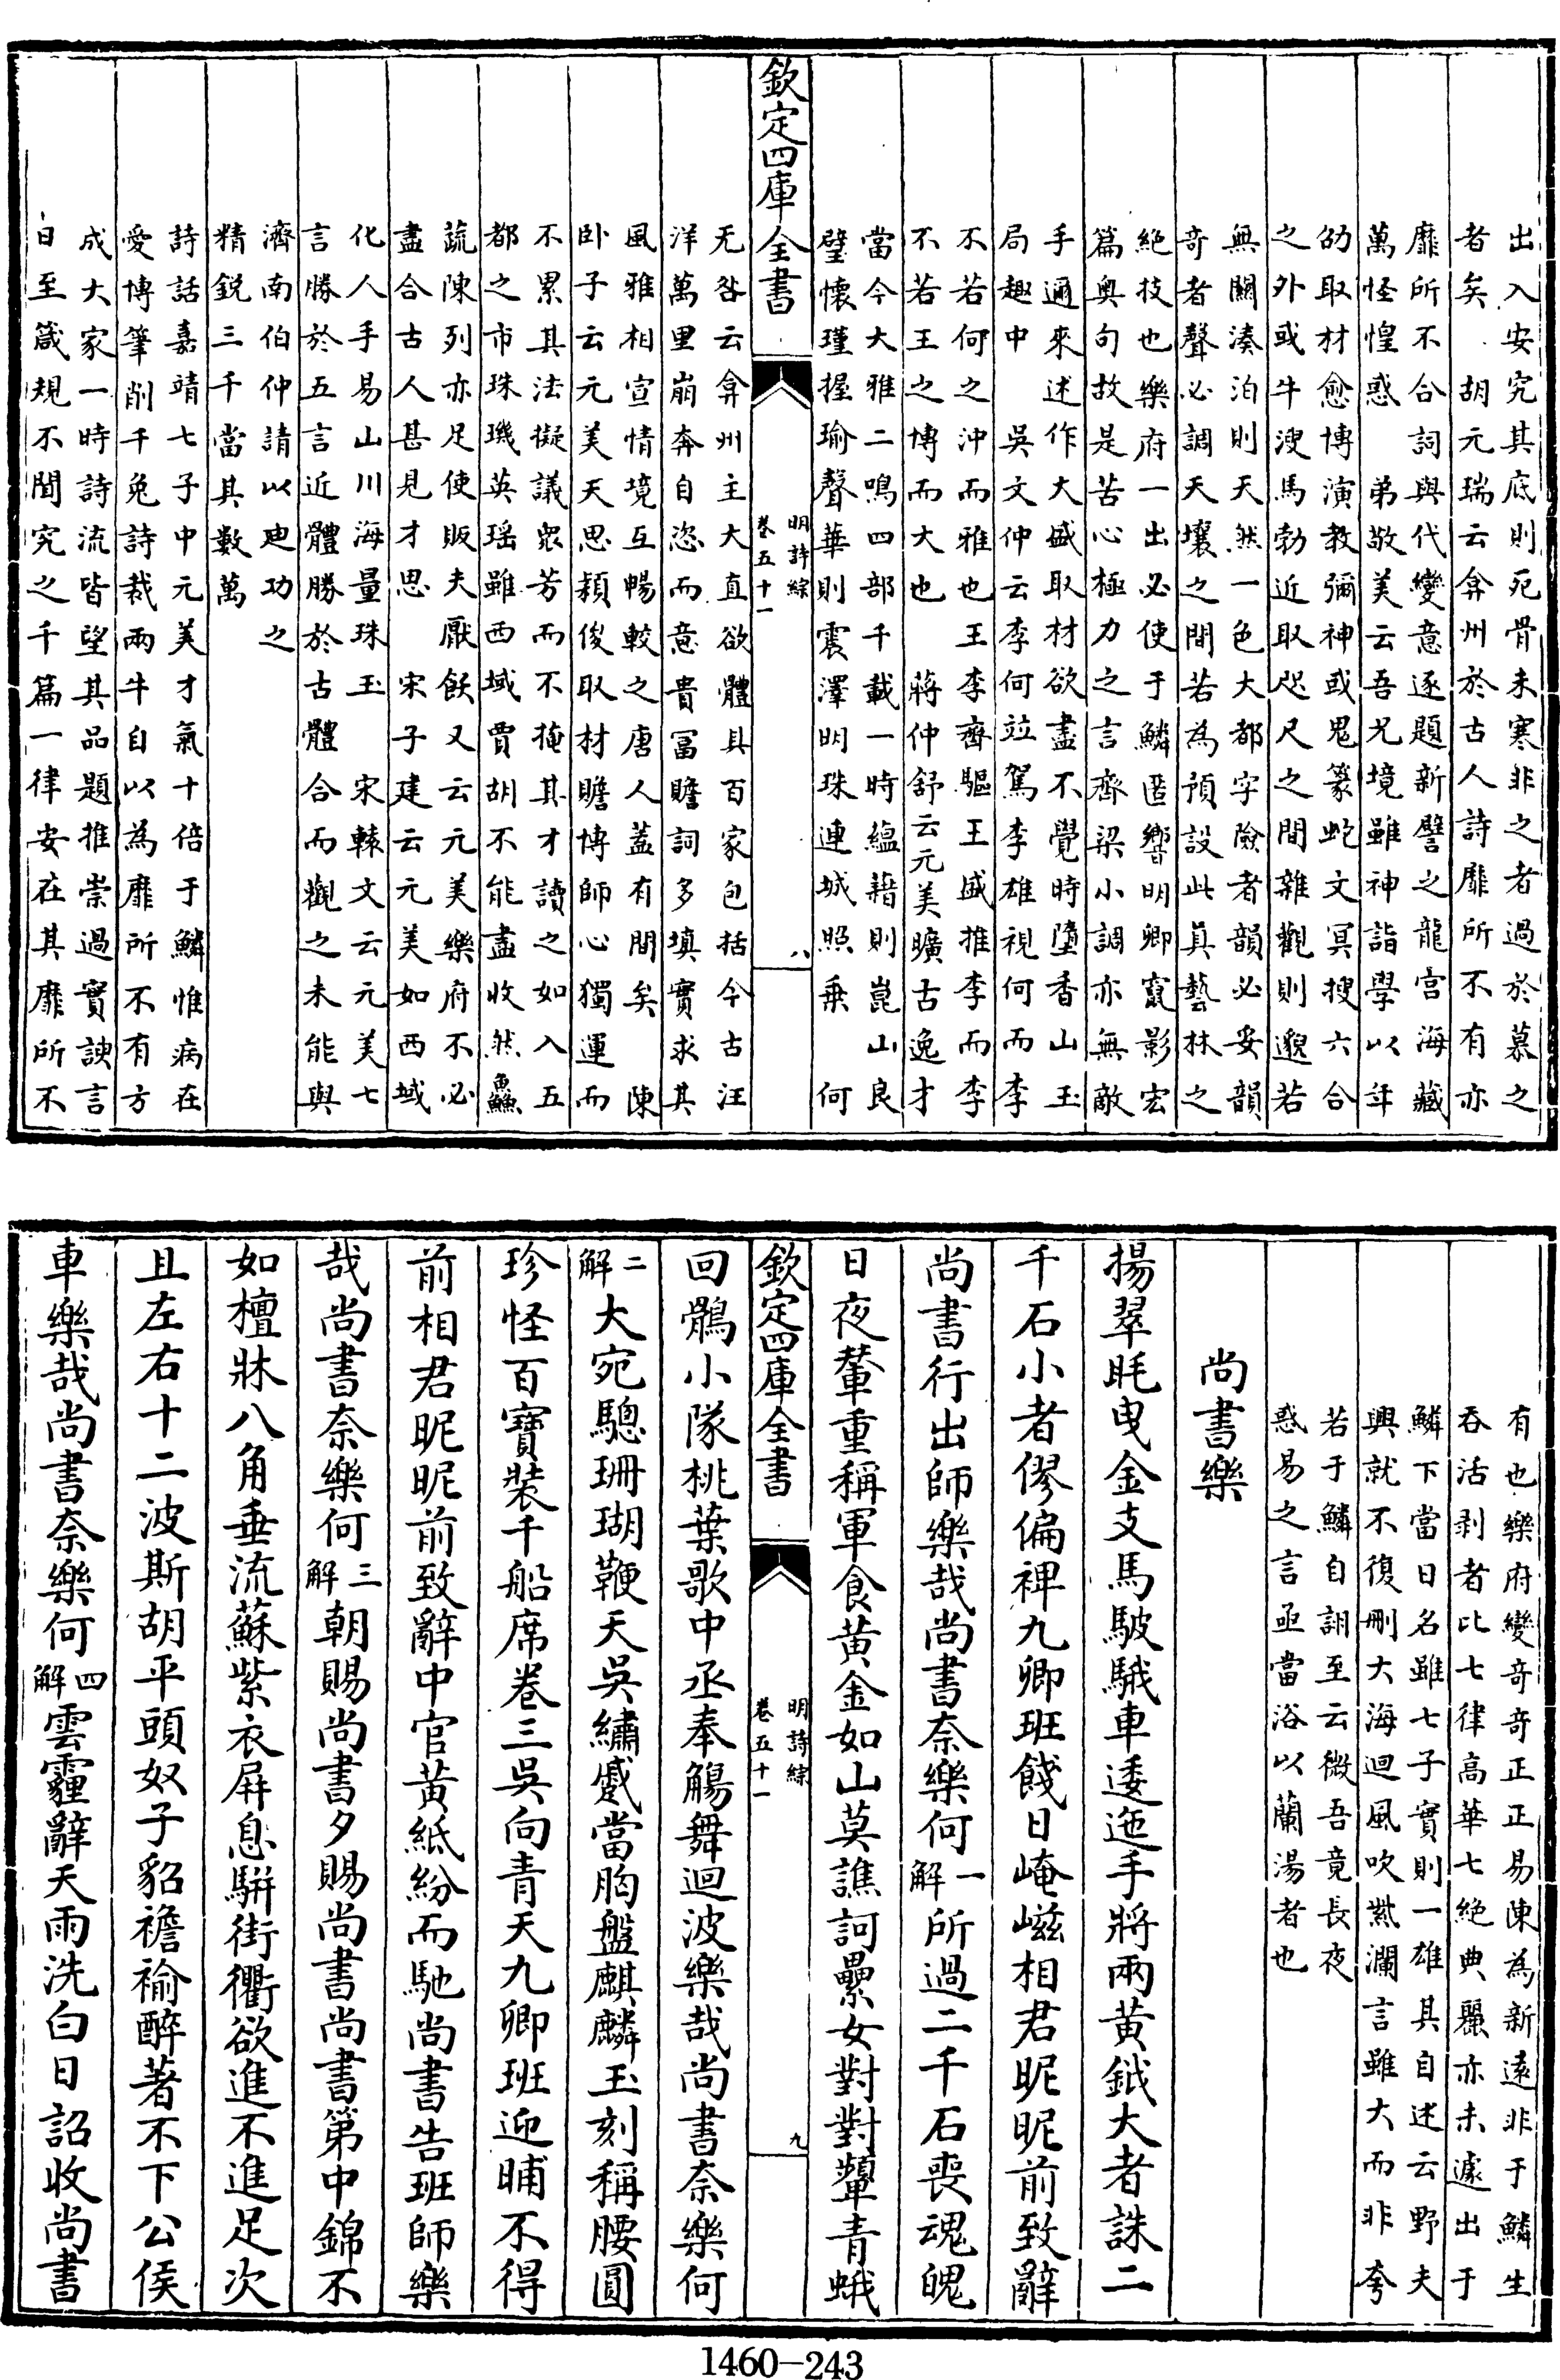 出入安究其底則死骨未寒非之者過於慕之
者矣　胡元瑞云弇州於古人詩靡所不有亦
靡所不合詞與代變意逐題新譬之龍宮海藏
萬怪惶惑　弟敬美云吾兄境雖神詣學以年
劭取材愈博演教彌神或鬼篆蛇文冥搜六合
之外或牛溲馬勃近取咫尺之間雜觀則邈若
無關湊泊則天然一色大都字險者韻必妥韻
奇者聲必調天壤之間若為預設此真藝林之
絶技也樂府一出必使于鱗匿響明卿竄影宏
篇奥句故是苦心極力之言齊梁小調亦無敵
手邇來述作大盛取材欲盡不覺時墮香山玉
局趣中　吳文仲云李何竝駕李雄視何而李
不若何之沖而雅也王李齊驅王盛推李而李
不若王之博而大也　蔣仲舒云元美曠古逸才
當今大雅二鳴四部千載一時蘊藉則崑山良
璧懷瑾握瑜聲華則震澤明珠連城照乗　何
欽定四庫全書
明詩綜
卷五十一
八
无咎云弇州主大直欲體具百家包括今古汪
洋萬里崩奔自恣而意貴富贍詞多填實求其
風雅相宣情境互暢較之唐人蓋有間矣　陳
卧子云元美天思穎俊取材贍博師心獨運而
不累其法擬議衆芳而不掩其才讀之如入五
都之市珠璣英瑶雖西域賈胡不能盡收然鱻
蔬陳列亦足使販夫厭飫又云元美樂府不必
盡合古人甚見才思　宋子建云元美如西域
化人手易山川海量珠玉　宋轅文云元美七
言勝於五言近體勝於古體合而觀之未能與
濟南伯仲請以廸功之
精鋭三千當其數萬
詩話嘉靖七子中元美才氣十倍于鱗惟病在
愛博筆削千兔詩裁兩牛自以為靡所不有方
成大家一時詩流皆望其品題推崇過實諛言
日至箴規不聞究之千篇一律安在其靡所不
有也樂府變奇奇正正易陳為新逺非于鱗生
吞活剥者比七律高華七絶典麗亦未遽出于
鱗下當日名雖七子實則一雄其自述云野夫
興就不復刪大海迴風吹紫瀾言雖大而非夸
若于鱗自詡至云微吾竟長夜
惑易之言亟當浴以蘭湯者也
尚書樂
揚翠旄曳金支馬駊騀車逶迤手將兩黄鉞大者誅二
千石小者僇偏裨九卿班餞日崦嵫相君昵昵前致辭
尚書行出師樂哉尚書奈樂何一解所過二千石喪魂魄
日夜輦重稱軍食黄金如山莫譙訶纍女對對顰青蛾
欽定四庫全書
明詩綜
卷五十一
九
回鶻小隊桃葉歌中丞奉觴舞迴波樂哉尚書奈樂何
二解大宛驄珊瑚鞭天吳繡蹙當胸盤麒麟玉刻稱腰圓
珍怪百寶裝千船席卷三吳向青天九卿班迎晡不得
前相君昵昵前致辭中官黄紙紛而馳尚書告班師樂
哉尚書奈樂何三解朝賜尚書夕賜尚書尚書第中錦不
如檀牀八角垂流蘇紫衣屏息駢街衢欲進不進足次
且左右十二波斯胡平頭奴子貂襜褕醉著不下公侯
車樂哉尚書奈樂何四解雲霾辭天雨洗白日詔收尚書
1460-243